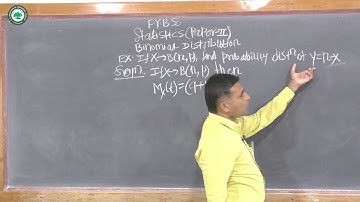 F.Y.B.Sc
Statistics (Paper-II)
Binomial Distribution
Ex. If X→B(n,p), find probability distⁿ of Y=n-X
Solⁿ: If X→B(n,p) then
Mₓ(t)=(q+